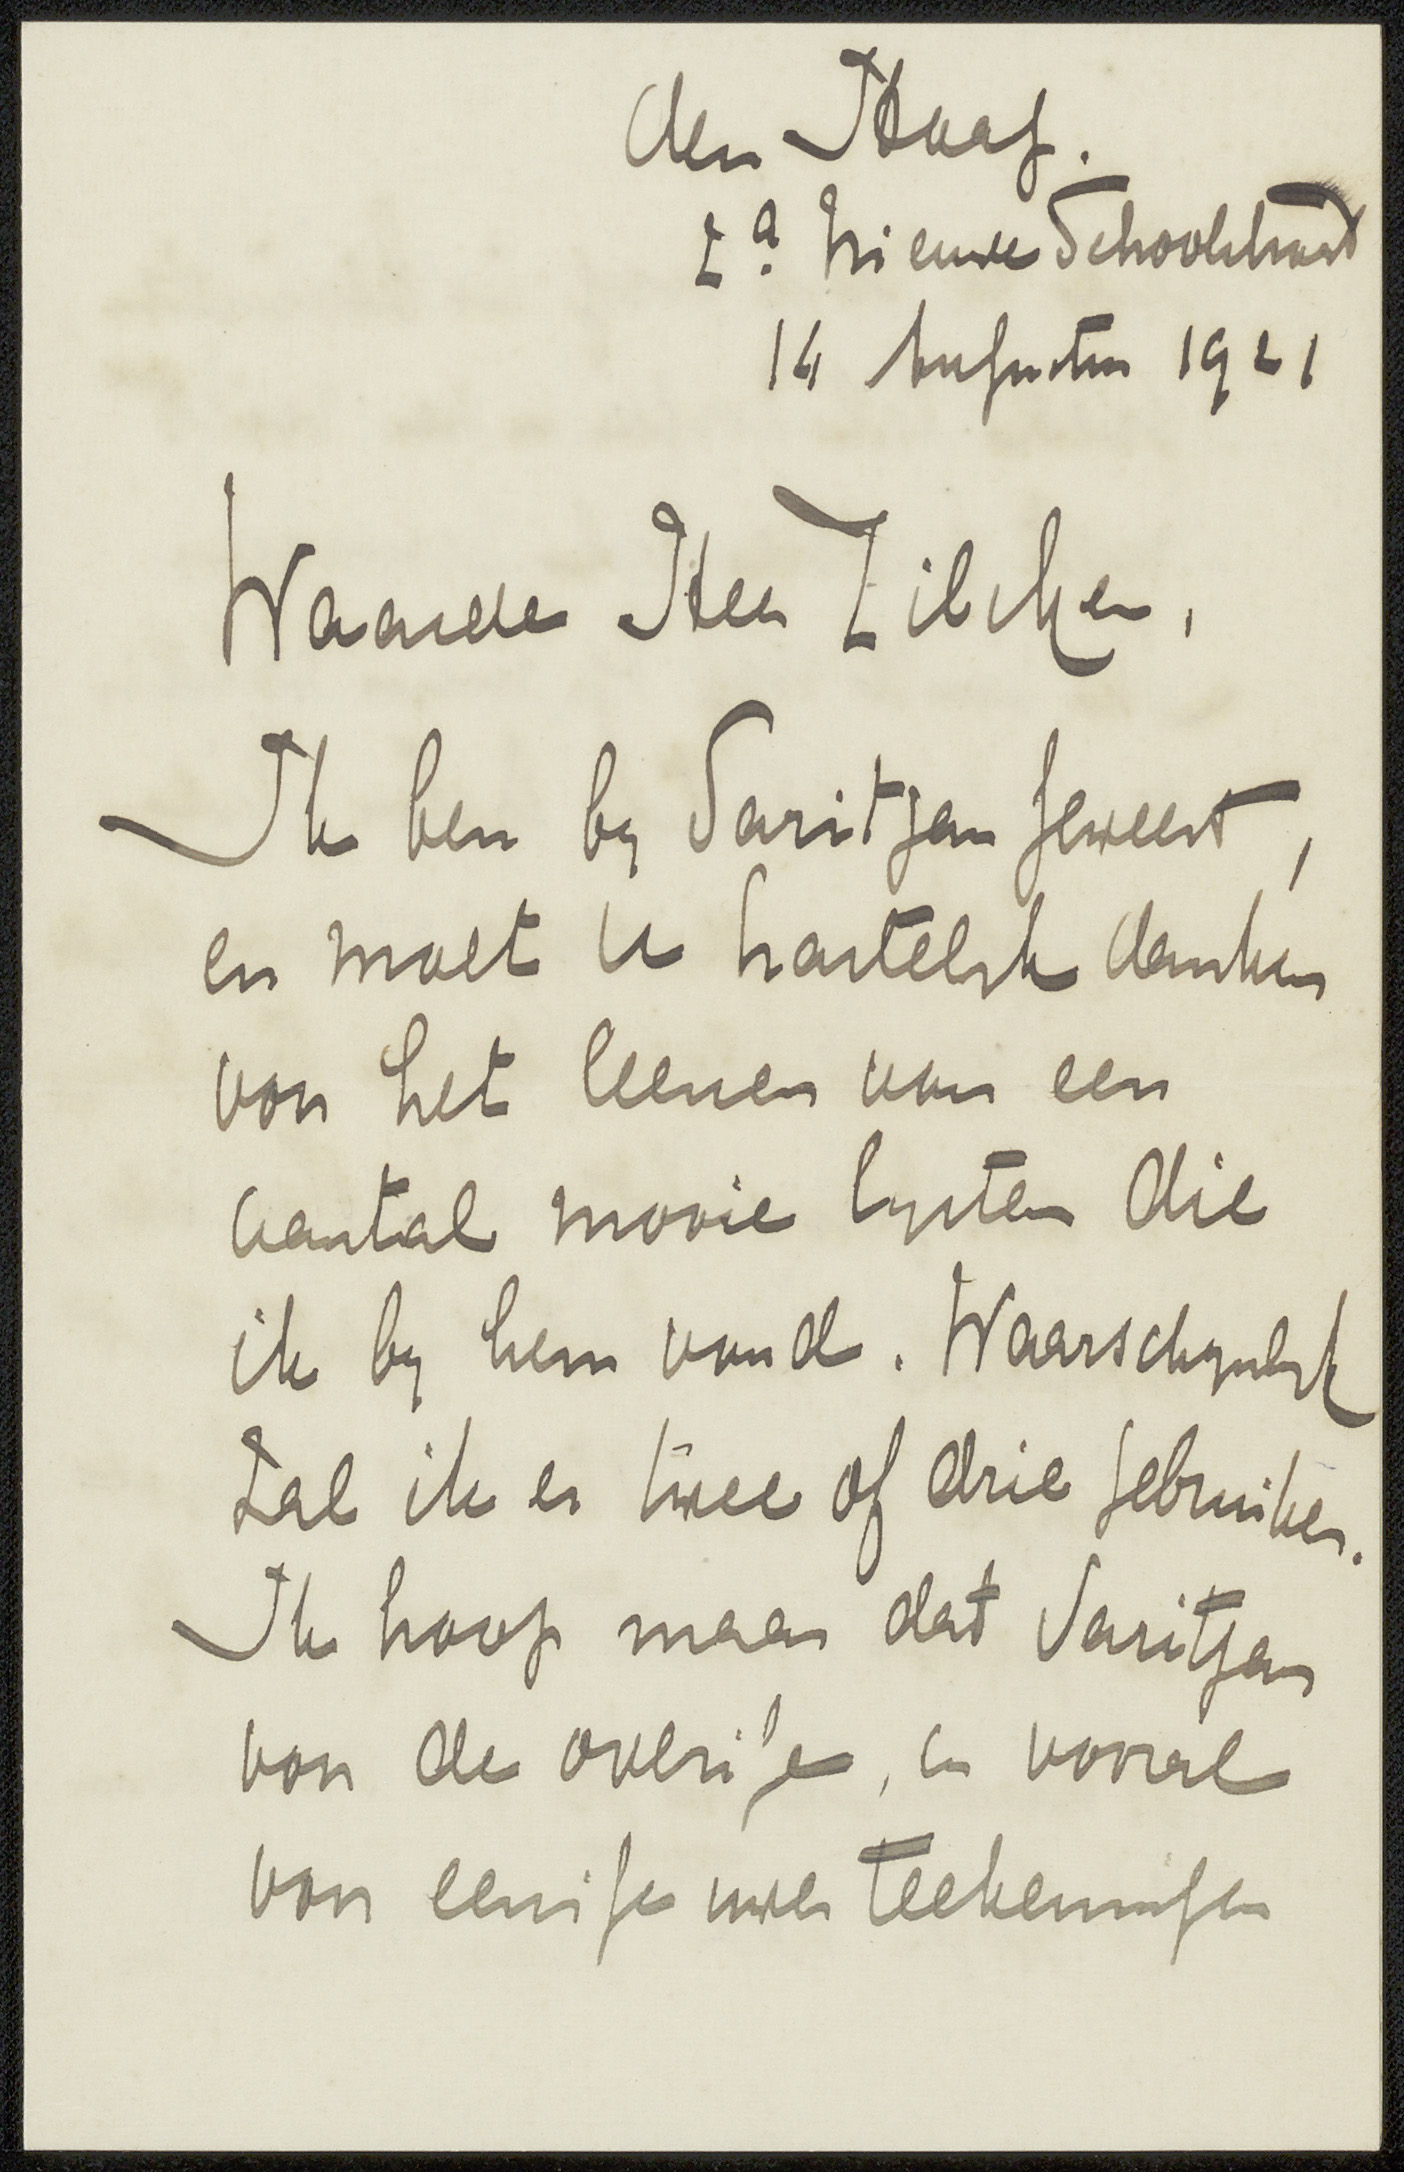 den Haag.
2a. Nieuwe Schoolstraat
14 Augustus 1921
Waarde Heer Zilcken,
Ik ben by Saritjan geweest,
en moet U hartelyk danken
voor het leenen van een
aantal mooie lysten die
ik by hem vond. Waarschynlyk
zal ik er twee of drie gebruiken.
Ik hoop maar dat Saritjan
voor de overige, en vooral
voor eenige uwer teekeningen